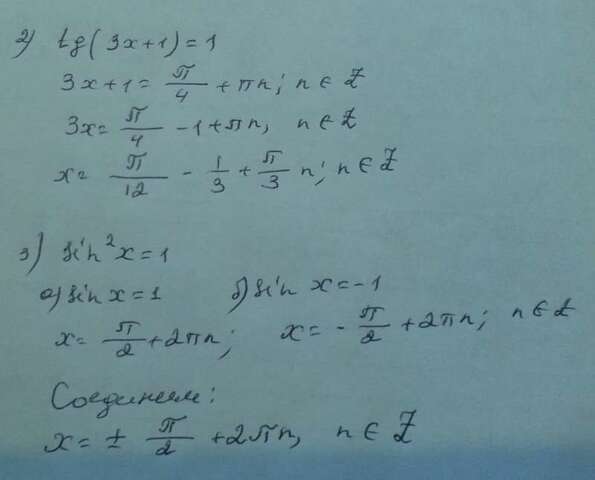 2) tg(3x+1)=1
3x+1= π/4 +πn; n∈Z
3x= π/4 -1+πn, n∈Z
x= π/12 - 1/3 + π/3 n; n∈Z
3) sin²x=1
а) sin x=1 б) sin x=-1
x= π/2 +2πn; x= - π/2 +2πn; n∈Z
Соединим:
x= ± π/2 +2πn, n∈Z